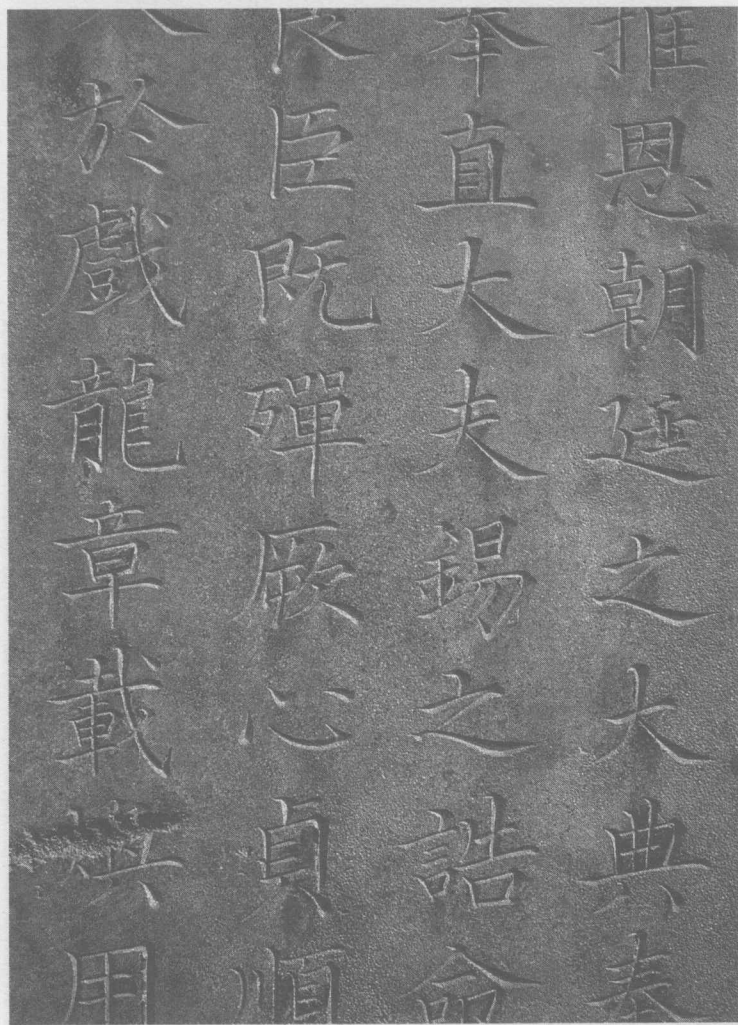 推恩朝廷之大典奉
奉直大夫錫之誥命
良臣既殫厥心貞順
於戲龍章載錫用